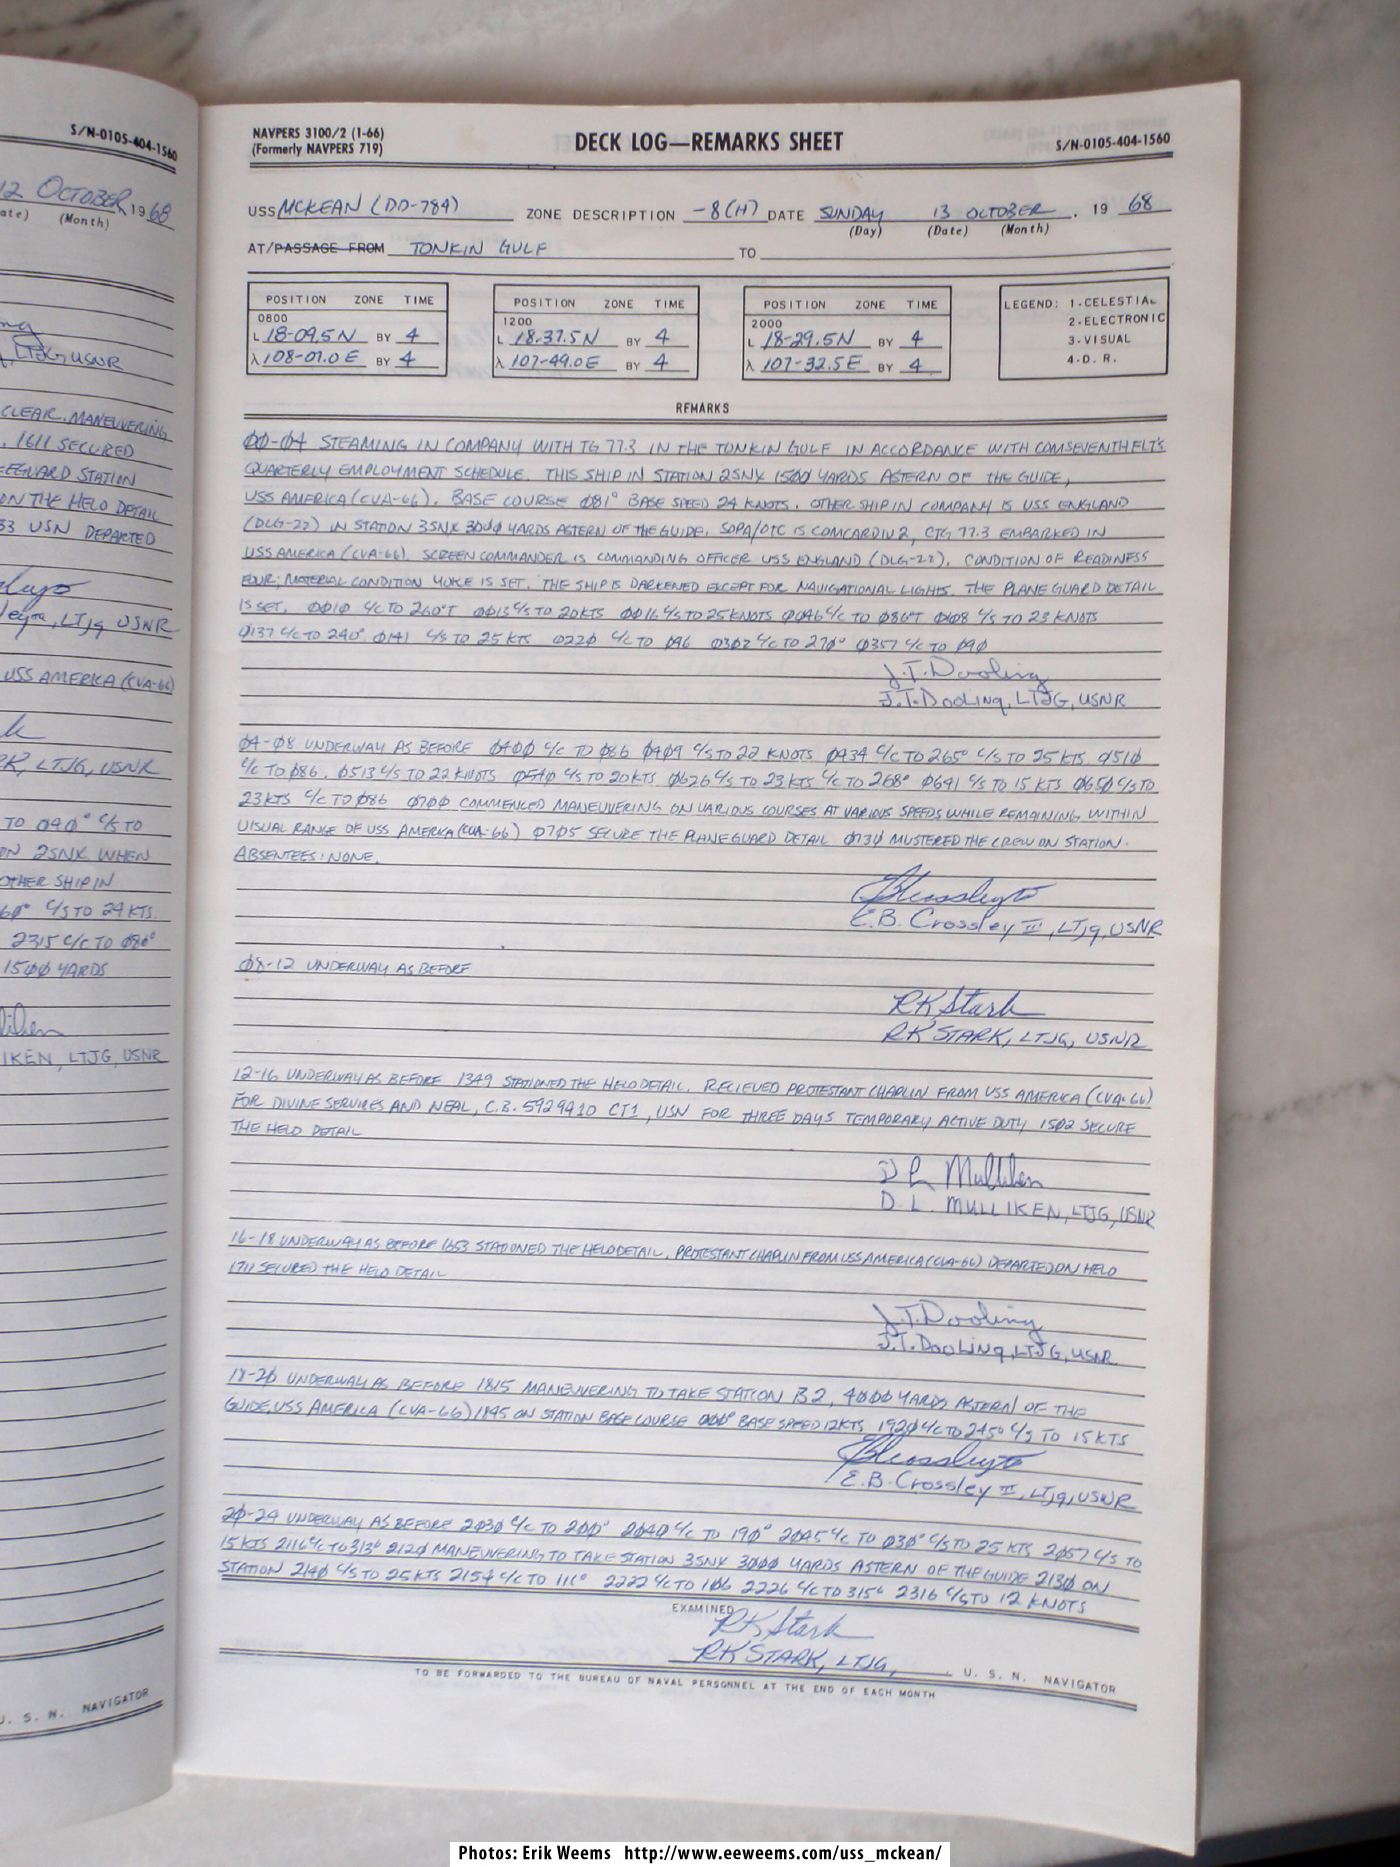 S/N-0105-404-1560
12 OCTOBER 1968
(Month)
LTJG, USNR
CLEAR. MANEUVERING
. 1611 SECURED
STATION
ON THE HELO DETAIL
USN DEPARTED
LTjg USNR
USS AMERICA (CVA-66)
LTJG, USNR
TO 040° C/S TO
ON 2SNX WHEN
OTHER SHIP IN
60° C/S TO 24 KTS.
2315 C/C TO 080°
15ØØ YARDS
IKEN, LTJG, USNR
U. S. N. NAVIGATOR
NAVPERS 3100/2 (1-66)
(Formerly NAVPERS 719)
DECK LOG—REMARKS SHEET
S/N-0105-404-1560
USS MCKEAN (DD-784) ZONE DESCRIPTION -8(H) DATE SUNDAY 13 OCTOBER, 19 68
(Day) (Date) (Month)
AT/PASSAGE FROM TONKIN GULF TO
POSITION ZONE TIME
0800
L 18-09.5N BY 4
λ 108-01.0E BY 4
POSITION ZONE TIME
1200
L 18-37.5N BY 4
λ 107-49.0E BY 4
POSITION ZONE TIME
2000
L 18-29.5N BY 4
λ 107-32.5E BY 4
LEGEND: 1.CELESTIAL
2.ELECTRONIC
3.VISUAL
4.D. R.
REMARKS
ØØ-Ø4 STEAMING IN COMPANY WITH TG 77.3 IN THE TONKIN GULF IN ACCORDANCE WITH COMSEVENTHFLT'S
QUARTERLY EMPLOYMENT SCHEDULE. THIS SHIP IN STATION 2SNX 15ØØ YARDS ASTERN OF THE GUIDE,
USS AMERICA (CVA-66). BASE COURSE Ø81° BASE SPEED 24 KNOTS. OTHER SHIP IN COMPANY IS USS ENGLAND
(DLG-22) IN STATION 3SNX 3ØØØ YARDS ASTERN OF THE GUIDE. SOPA/OTC IS COMCARDIV 2, CTG 77.3 EMBARKED IN
USS AMERICA (CVA-66). SCREEN COMMANDER IS COMMANDING OFFICER USS ENGLAND (DLG-22). CONDITION OF READINESS
FOUR; MATERIAL CONDITION YOKE IS SET. THE SHIP IS DARKENED EXCEPT FOR NAVIGATIONAL LIGHTS. THE PLANE GUARD DETAIL
IS SET. ØØ1Ø C/C TO 260°T ØØ13 C/S TO 20KTS ØØ16 C/S TO 25 KNOTS ØØ46 C/C TO Ø86°T Ø1Ø8 C/S TO 23 KNOTS
Ø137 C/C TO 240° Ø141 C/S TO 25 KTS Ø22Ø C/C TO Ø96 Ø3Ø2 C/C TO 270° Ø357 C/C TO Ø9Ø
J.T. Dooling
J.T. Dooling, LTJG, USNR
Ø4-Ø8 UNDERWAY AS BEFORE Ø4ØØ C/C TO Ø86 Ø4Ø9 C/S TO 22 KNOTS Ø434 C/C TO 265° C/S TO 25 KTS Ø51Ø
C/C TO Ø86. Ø513 C/S TO 22 KNOTS Ø54Ø C/S TO 20 KTS Ø626 C/S TO 23 KTS C/C TO 268° Ø641 C/S TO 15 KTS Ø65Ø C/S TO
23 KTS C/C TO Ø86 Ø7ØØ COMMENCED MANEUVERING ON VARIOUS COURSES AT VARIOUS SPEEDS WHILE REMAINING WITHIN
VISUAL RANGE OF USS AMERICA (CVA-66) Ø7Ø5 SECURE THE PLANE GUARD DETAIL Ø73Ø MUSTERED THE CREW ON STATION.
ABSENTEES: NONE.
E.B. Crossley II, LTjg, USNR
Ø8-12 UNDERWAY AS BEFORE
RK Stark
RK STARK, LTJG, USNR
12-16 UNDERWAY AS BEFORE 1349 STATIONED THE HELO DETAIL. RECIEVED PROTESTANT CHAPLIN FROM USS AMERICA (CVA-66)
FOR DIVINE SERVICES AND NEAL, C.B. 5929410 CT1, USN FOR THREE DAYS TEMPORARY ACTIVE DUTY 15Ø2 SECURE
THE HELO DETAIL
D L Mulliken
D. L. MULLIKEN, LTJG, USNR
16-18 UNDERWAY AS BEFORE 1653 STATIONED THE HELO DETAIL. PROTESTANT CHAPLIN FROM USS AMERICA (CVA-66) DEPARTED ON HELO
1711 SECURED THE HELO DETAIL
J.T. Dooling
J.T. Dooling, LTJG, USNR
18-2Ø UNDERWAY AS BEFORE 1815 MANEUVERING TO TAKE STATION B2, 4ØØØ YARDS ASTERN OF THE
GUIDE, USS AMERICA (CVA-66) 1845 ON STATION BASE COURSE ØØØ° BASE SPEED 12KTS 192Ø C/C TO 245° C/S TO 15 KTS
E.B. Crossley II, LTjg, USNR
2Ø-24 UNDERWAY AS BEFORE 2Ø3Ø C/C TO 2ØØ° 2Ø4Ø C/C TO 19Ø° 2Ø45 C/C TO Ø3Ø° C/S TO 25 KTS 2Ø57 C/S TO
15 KTS 2116 C/C TO 313° 212Ø MANEUVERING TO TAKE STATION 3SNX 3ØØØ YARDS ASTERN OF THE GUIDE 213Ø ON
STATION 214Ø C/S TO 25 KTS 2154 C/C TO 111° 2222 C/C TO 1Ø6 2226 C/C TO 315° 2316 C/S TO 12 KNOTS
EXAMINED
RK Stark
RK STARK, LTJG, U. S. N. NAVIGATOR
TO BE FORWARDED TO THE BUREAU OF NAVAL PERSONNEL AT THE END OF EACH MONTH
Photos: Erik Weems http://www.eeweems.com/uss_mckean/